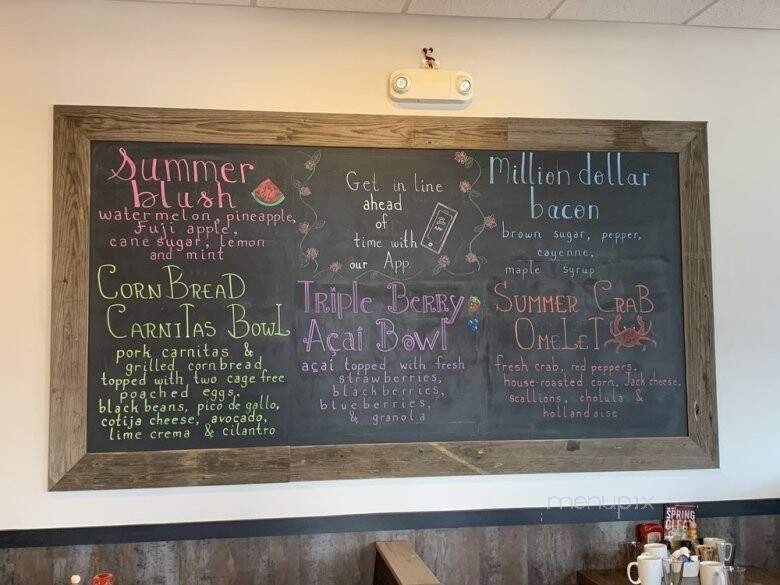 Summer
blush
watermelon, pineapple,
Fuji apple,
cane sugar, lemon
and mint
Get in line
ahead
of
time with
our App.
APP
Million dollar
bacon
brown sugar, pepper,
cayenne,
maple syrup
CornBreaD
CarniTas BowL
pork carnitas &
grilled cornbread
topped with two cage free
poached eggs,
black beans, pico de gallo,
cotija cheese, avocado,
lime crema & cilantro
Triple Berry
Açai Bowl
açai topped with fresh
strawberries,
blackberries,
blueberries,
& granola
Summer CraB
OmeLeT
fresh crab, red peppers,
house-roasted corn, Jack cheese,
scallions, cholula &
hollandaise
menupix
SPRING